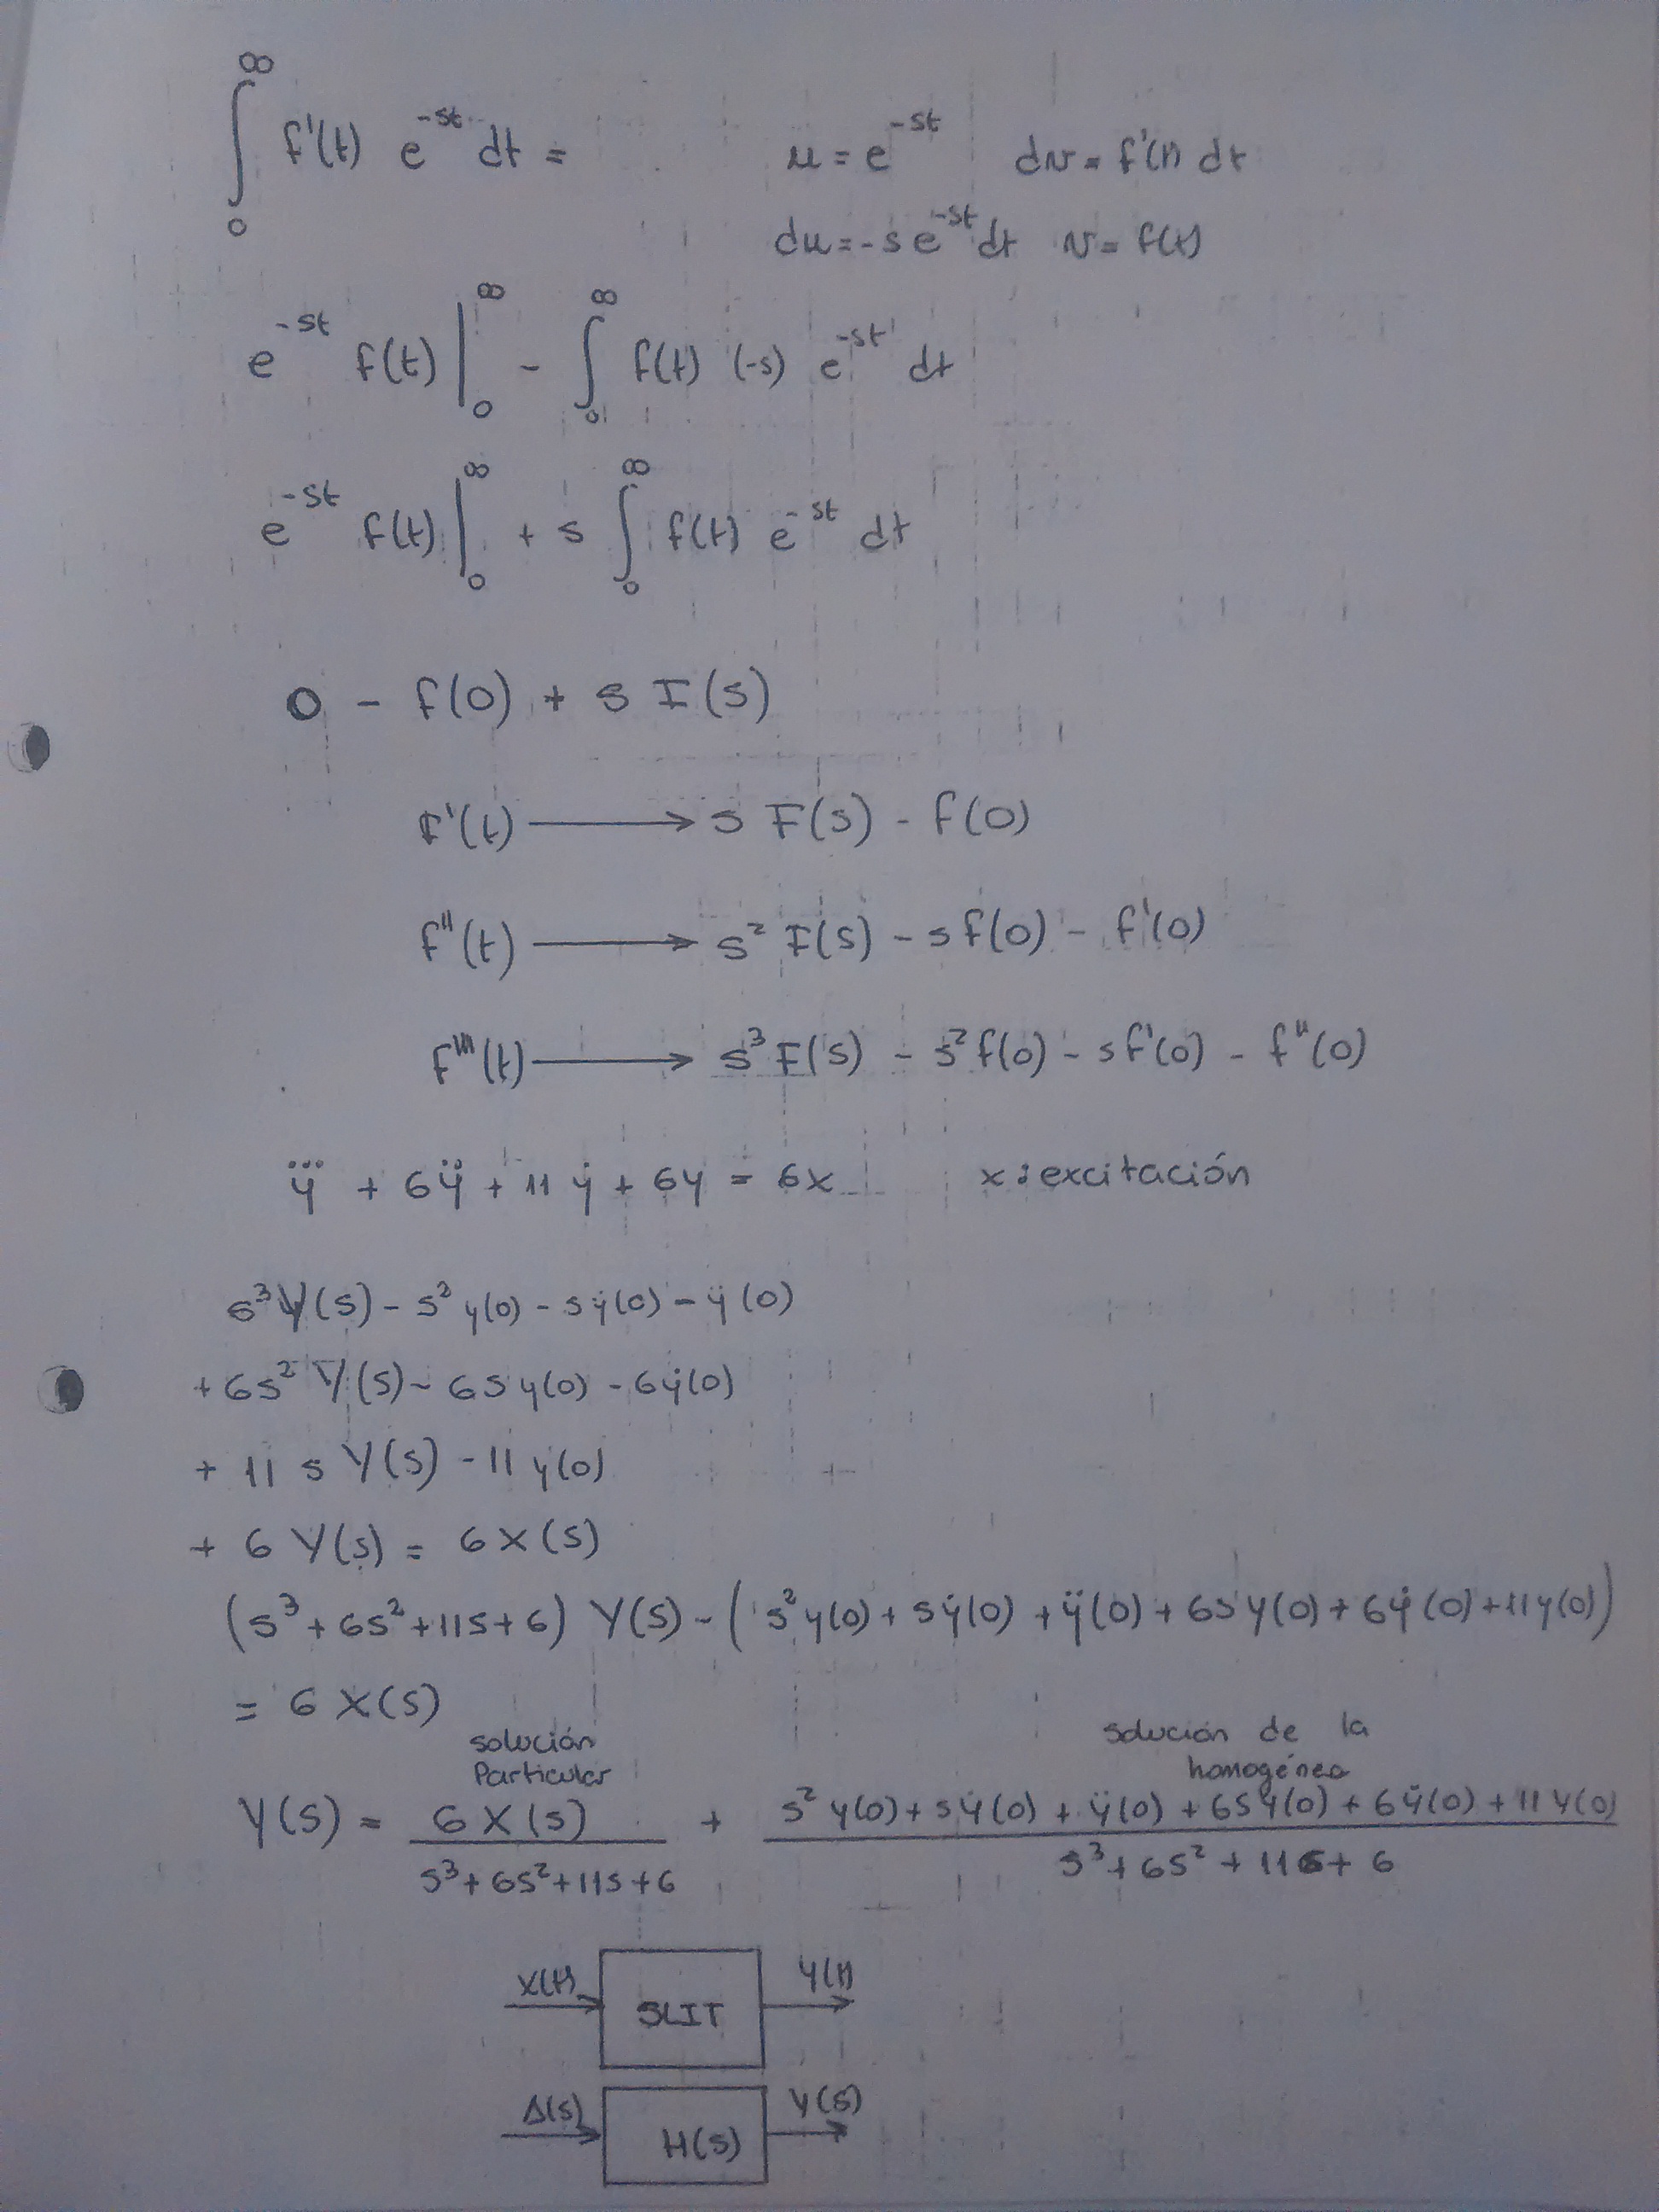 ∫₀^∞ f'(t) e^{-st} dt = u = e^{-st} dv = f'(t) dt
du = -s e^{-st} dt v = f(t)
e^{-st} f(t) |₀^∞ - ∫₀^∞ f(t) (-s) e^{-st} dt
e^{-st} f(t) |₀^∞ + s ∫₀^∞ f(t) e^{-st} dt
0 - f(0) + s F(s)
f'(t) ⟶ s F(s) - f(0)
f''(t) ⟶ s² F(s) - s f(0) - f'(0)
f'''(t) ⟶ s³ F(s) - s² f(0) - s f'(0) - f''(0)
y⃛ + 6ÿ + 11ẏ + 6y = 6x x: excitación
s³ Y(s) - s² y(0) - s ẏ(0) - ÿ(0)
+ 6s² Y(s) - 6s y(0) - 6ẏ(0)
+ 11 s Y(s) - 11 y(0)
+ 6 Y(s) = 6 X(s)
(s³ + 6s² + 11s + 6) Y(s) - (s² y(0) + s ẏ(0) + ÿ(0) + 6s y(0) + 6ẏ(0) + 11 y(0))
= 6 X(s)
solución Particular solución de la homogénea
Y(s) = 6 X(s) / s³ + 6s² + 11s + 6 + s² y(0) + s ẏ(0) + ÿ(0) + 6s y(0) + 6ẏ(0) + 11 y(0) / s³ + 6s² + 11s + 6
X(t) SLIT Y(t)
Δ(s) H(s) Y(s)